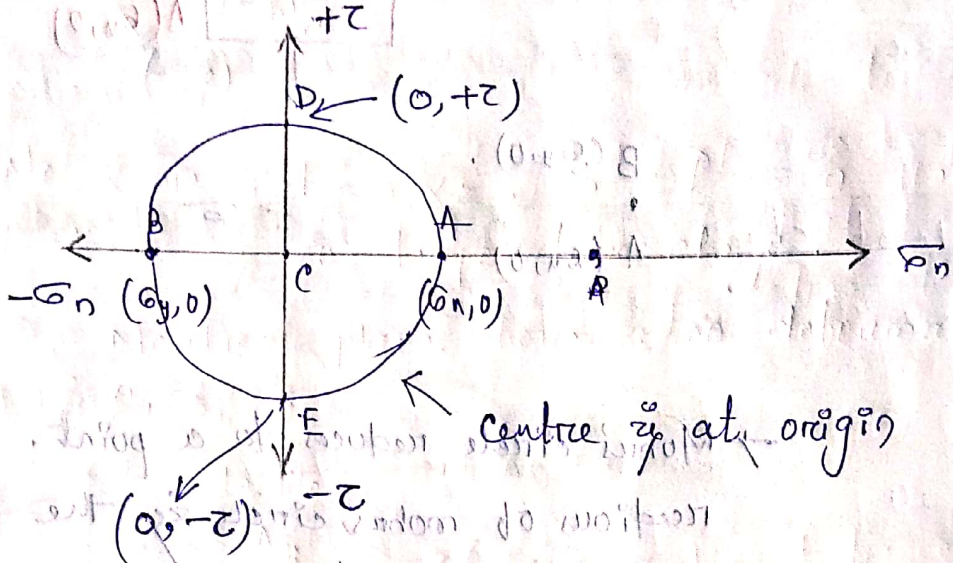 +τ
D (0, +τ)
B A
-σn (σy, 0) C (σx, 0) σn
E centre is at origin
(0, -τ) -τ